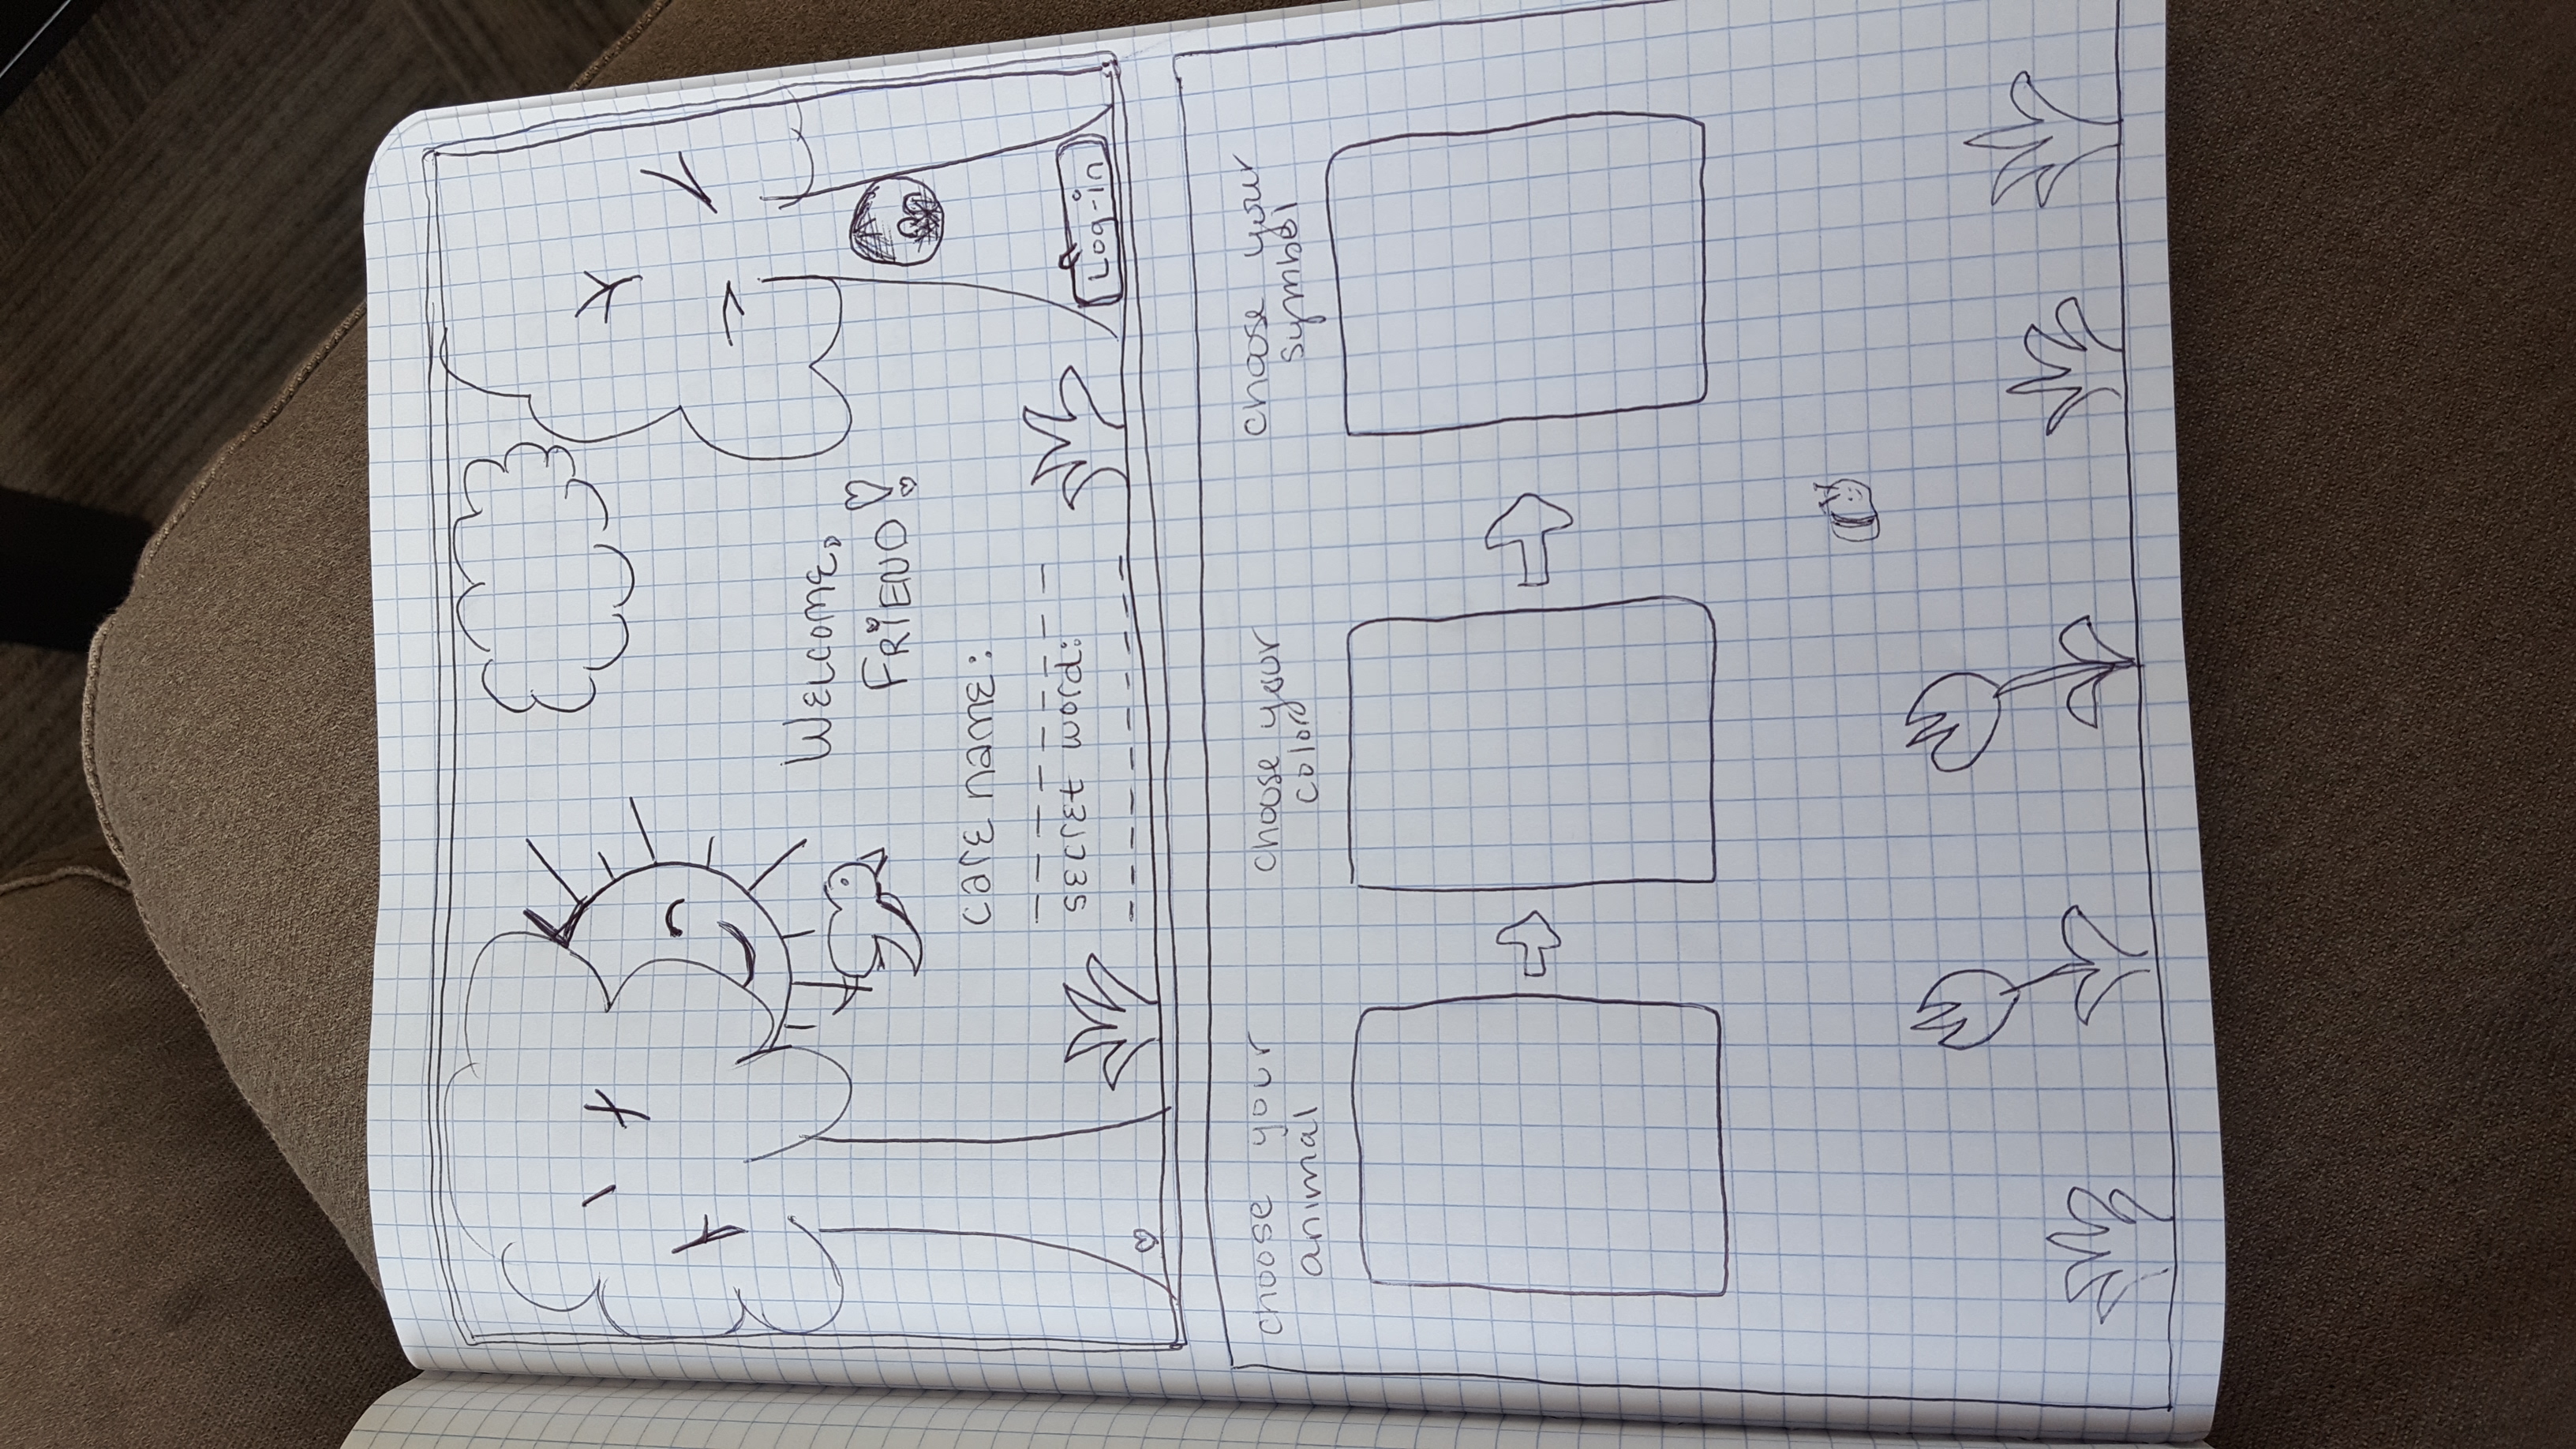 WELCOME,
FRIEND!
care name:
secret word:
Log-in
choose your
animal
choose your
color
choose your
symbol